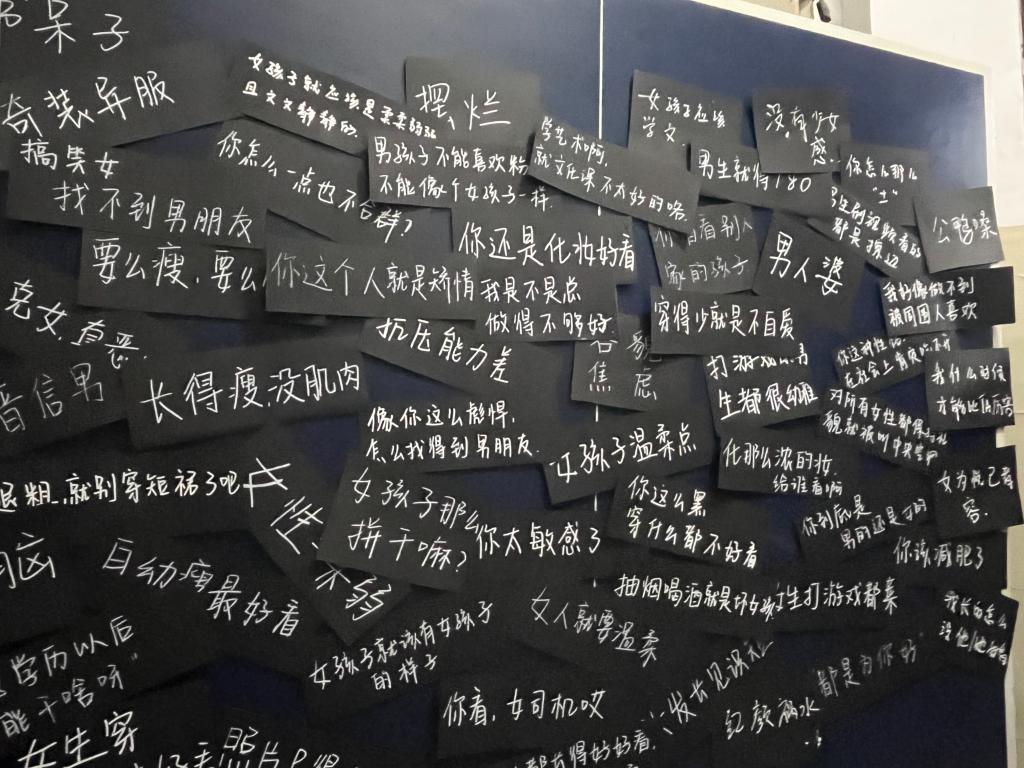 呆子
奇装异服
搞笑女
找不到男朋友
女孩子就应该是柔柔弱弱
且文文静静的
摆烂
你怎么一点也不合群？
男孩子不能喜欢粉
不能像个女孩子一样
学艺术啊，
就文化课不太好的咯
女孩子应该
学文
没有少女
感
男生就得180
你怎么那么
“土”
公鸭嗓
要么瘦，要么
你这个人就是矫情
你还是化妆好看
我是不是总
做得不够好
家的孩子
男人婆
我好像做不到
被周围人喜欢
穿得少就是不自爱
抗压能力差
焦虑
长得瘦，没肌肉
像你这么彪悍，
怎么找得到男朋友
生都很幼稚
我什么时候
女孩子温柔点
化那么浓的妆
给谁看啊
女为悦己者
容
粗，就别穿短裙了吧
女孩子那么
拼干嘛？
你太敏感了
你这么黑
穿什么都不好看
你到底是
男的还是女的
你该减肥了
脑
白幼瘦最好看
抽烟喝酒就是坏女孩
女生打游戏都菜
女人就要温柔
女孩子就该有女孩子
的样子
学历以后
能干啥呀”
我长的怎么
你看，女司机哎
都是为你好”
红颜祸水
女生穿
照片P得